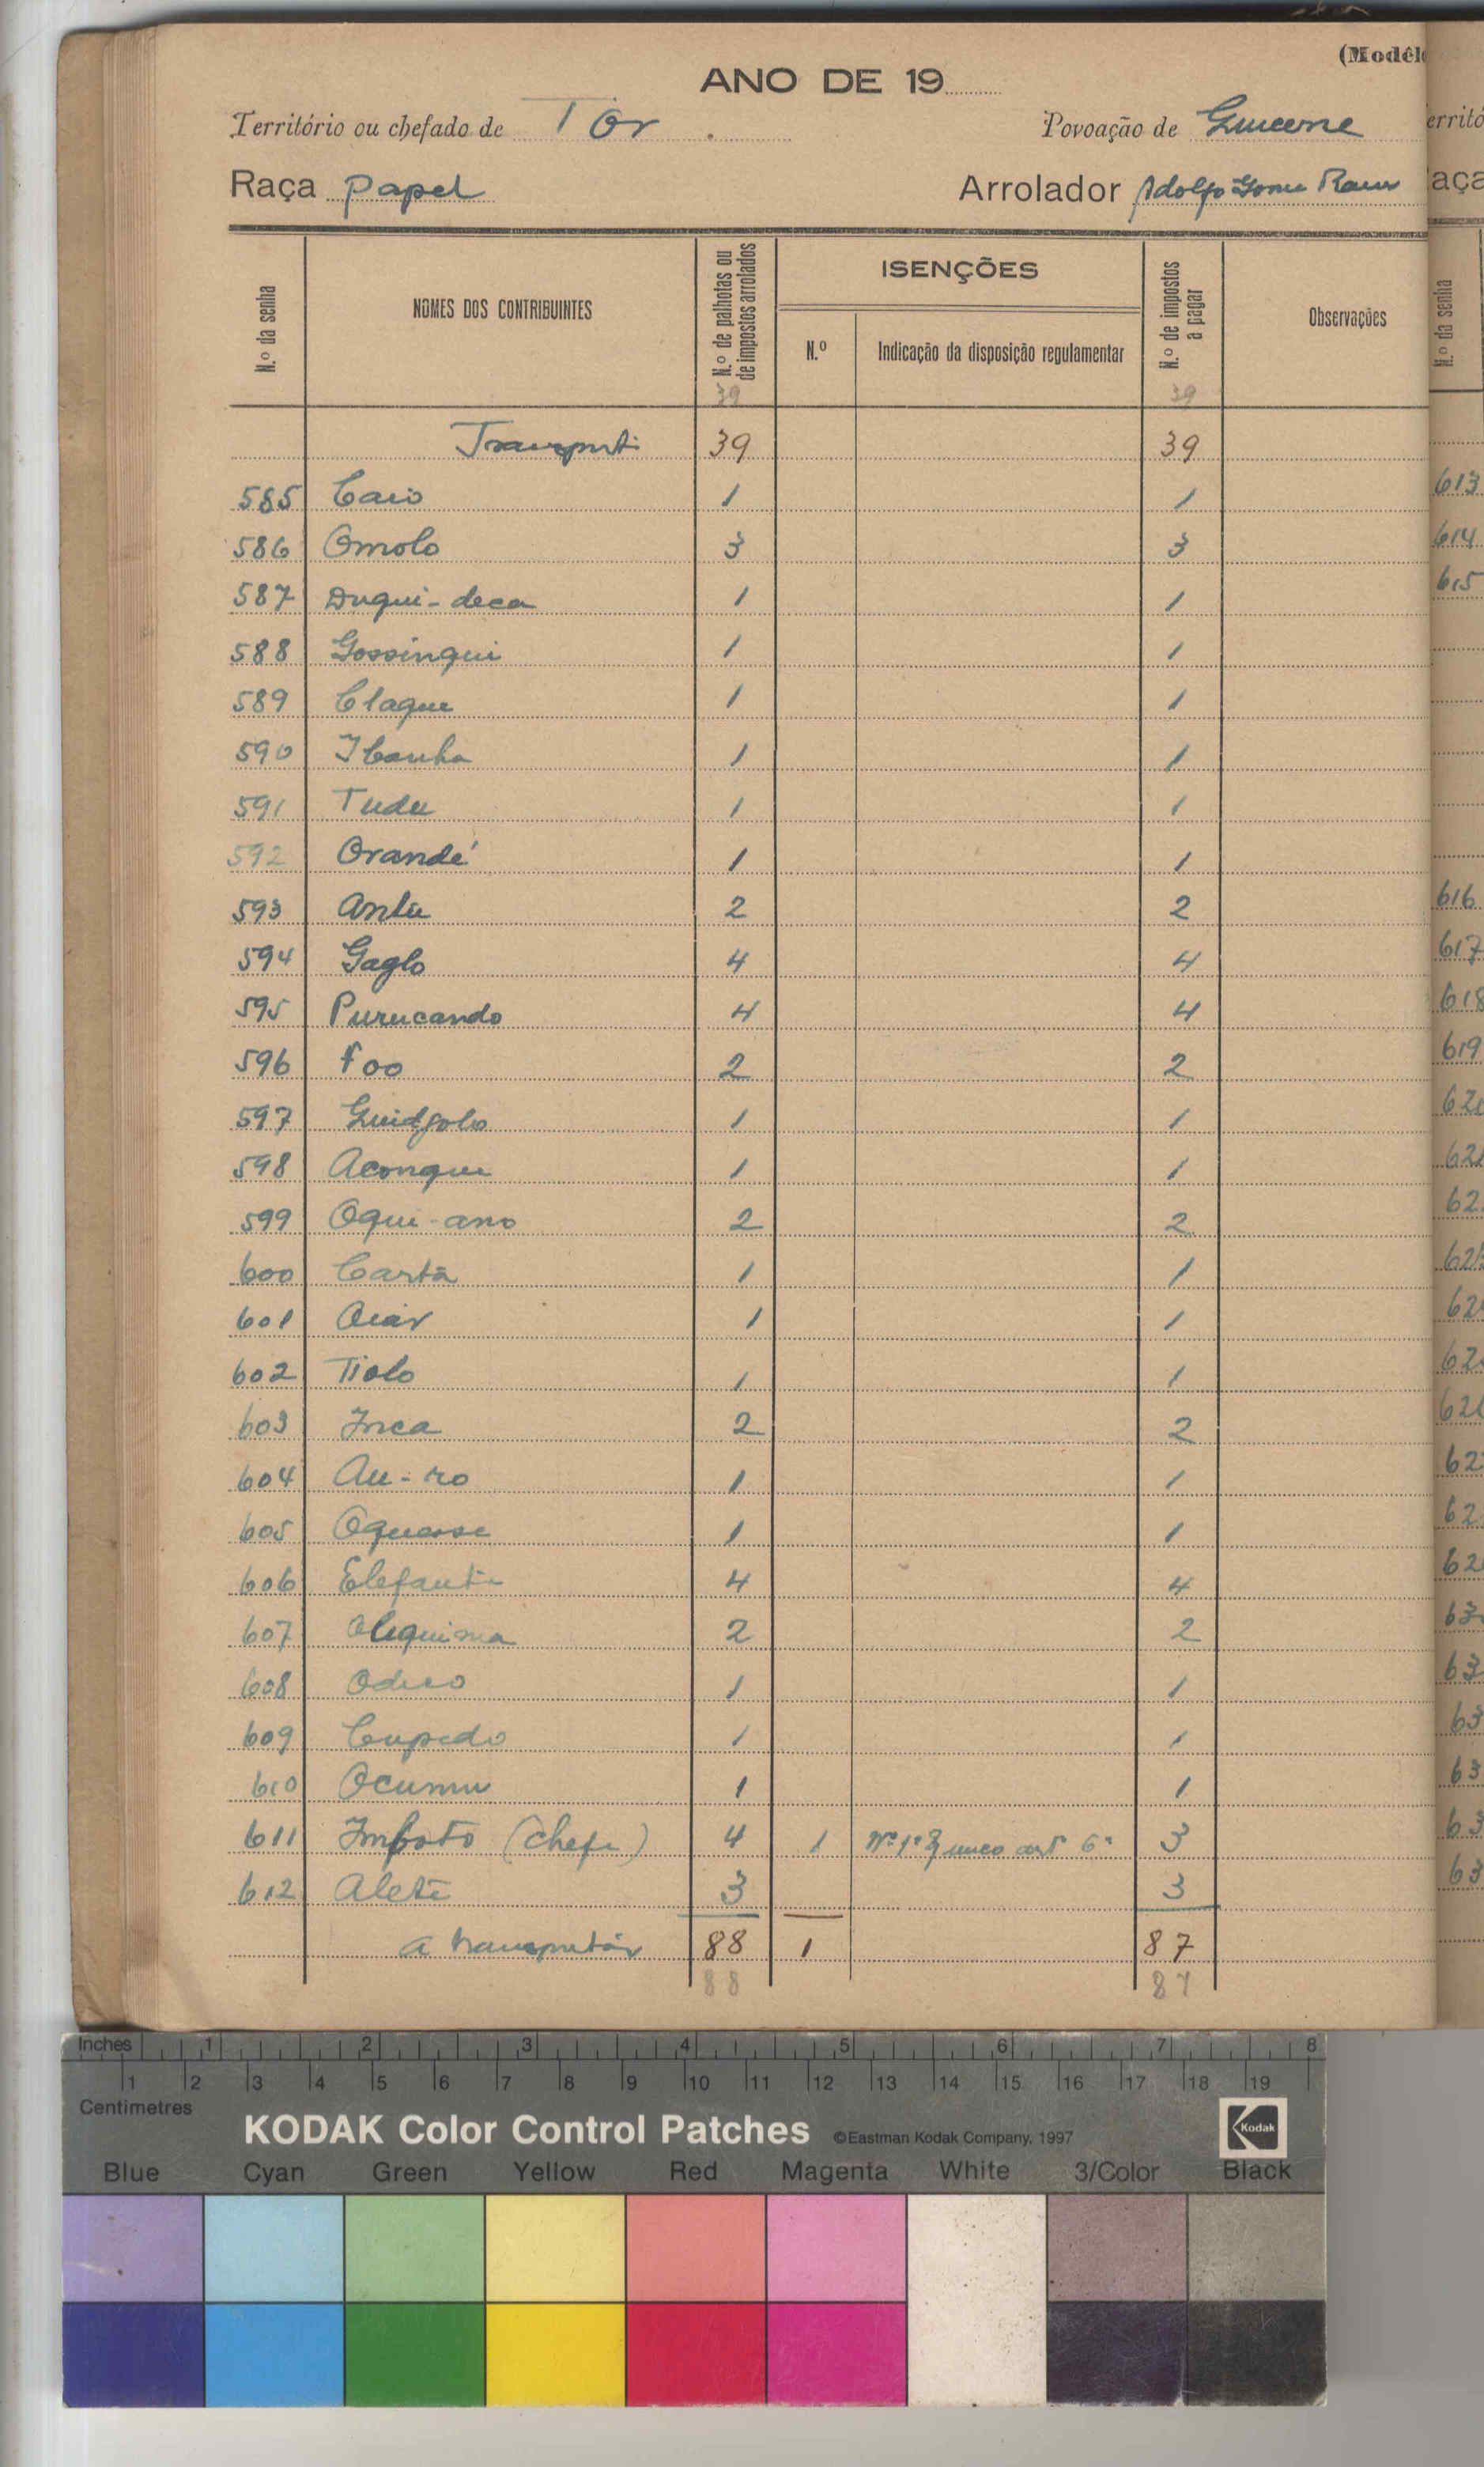 (Modêl
ANO DE 19
Território ou chefado de Tor Povoação de
Raça Papel Arrolador Adolfo Gomes
N.º da senha NOMES DOS CONTRIBUINTES N.º de palhotas ou de impostos arrolados ISENÇÕES N.º Indicação da disposição regulamentar N.º de impostos a pagar Observações
39 39
Transporte 39 39
585 Caio 1 1
586 Omolo 3 3
587 Duqui-deca 1 1
588 Gossinqui 1 1
589 Claque 1 1
590 Ibanha 1 1
591 Tudu 1 1
592 Orandé 1 1
593 2 2
594 Gaglo 4 4
595 Purucando 4 4
596 Foo 2 2
597 1 1
598 Aconque 1 1
599 Oqui-ano 2 2
600 Cartã 1 1
601 1 1
602 Tiolo 1 1
603 Inca 2 2
604 Au-ro 1 1
605 Oquasse 1 1
606 Elefante 4 4
607 2 2
608 1 1
609 Cupedo 1 1
610 1 1
611 Imboto (chefe) 4 1 Nº 1º § unico artº 6º 3
612 Alete 3 3
a transportar 88 1 87
88 87
erritó
aça
N.º da senha
613
614
615
616
617
618
619
Inches 1 2 3 4 5 6 7 8
1 2 3 4 5 6 7 8 9 10 11 12 13 14 15 16 17 18 19
Centimetres
KODAK Color Control Patches ©Eastman Kodak Company, 1997 Kodak
Blue Cyan Green Yellow Red Magenta White 3/Color Black